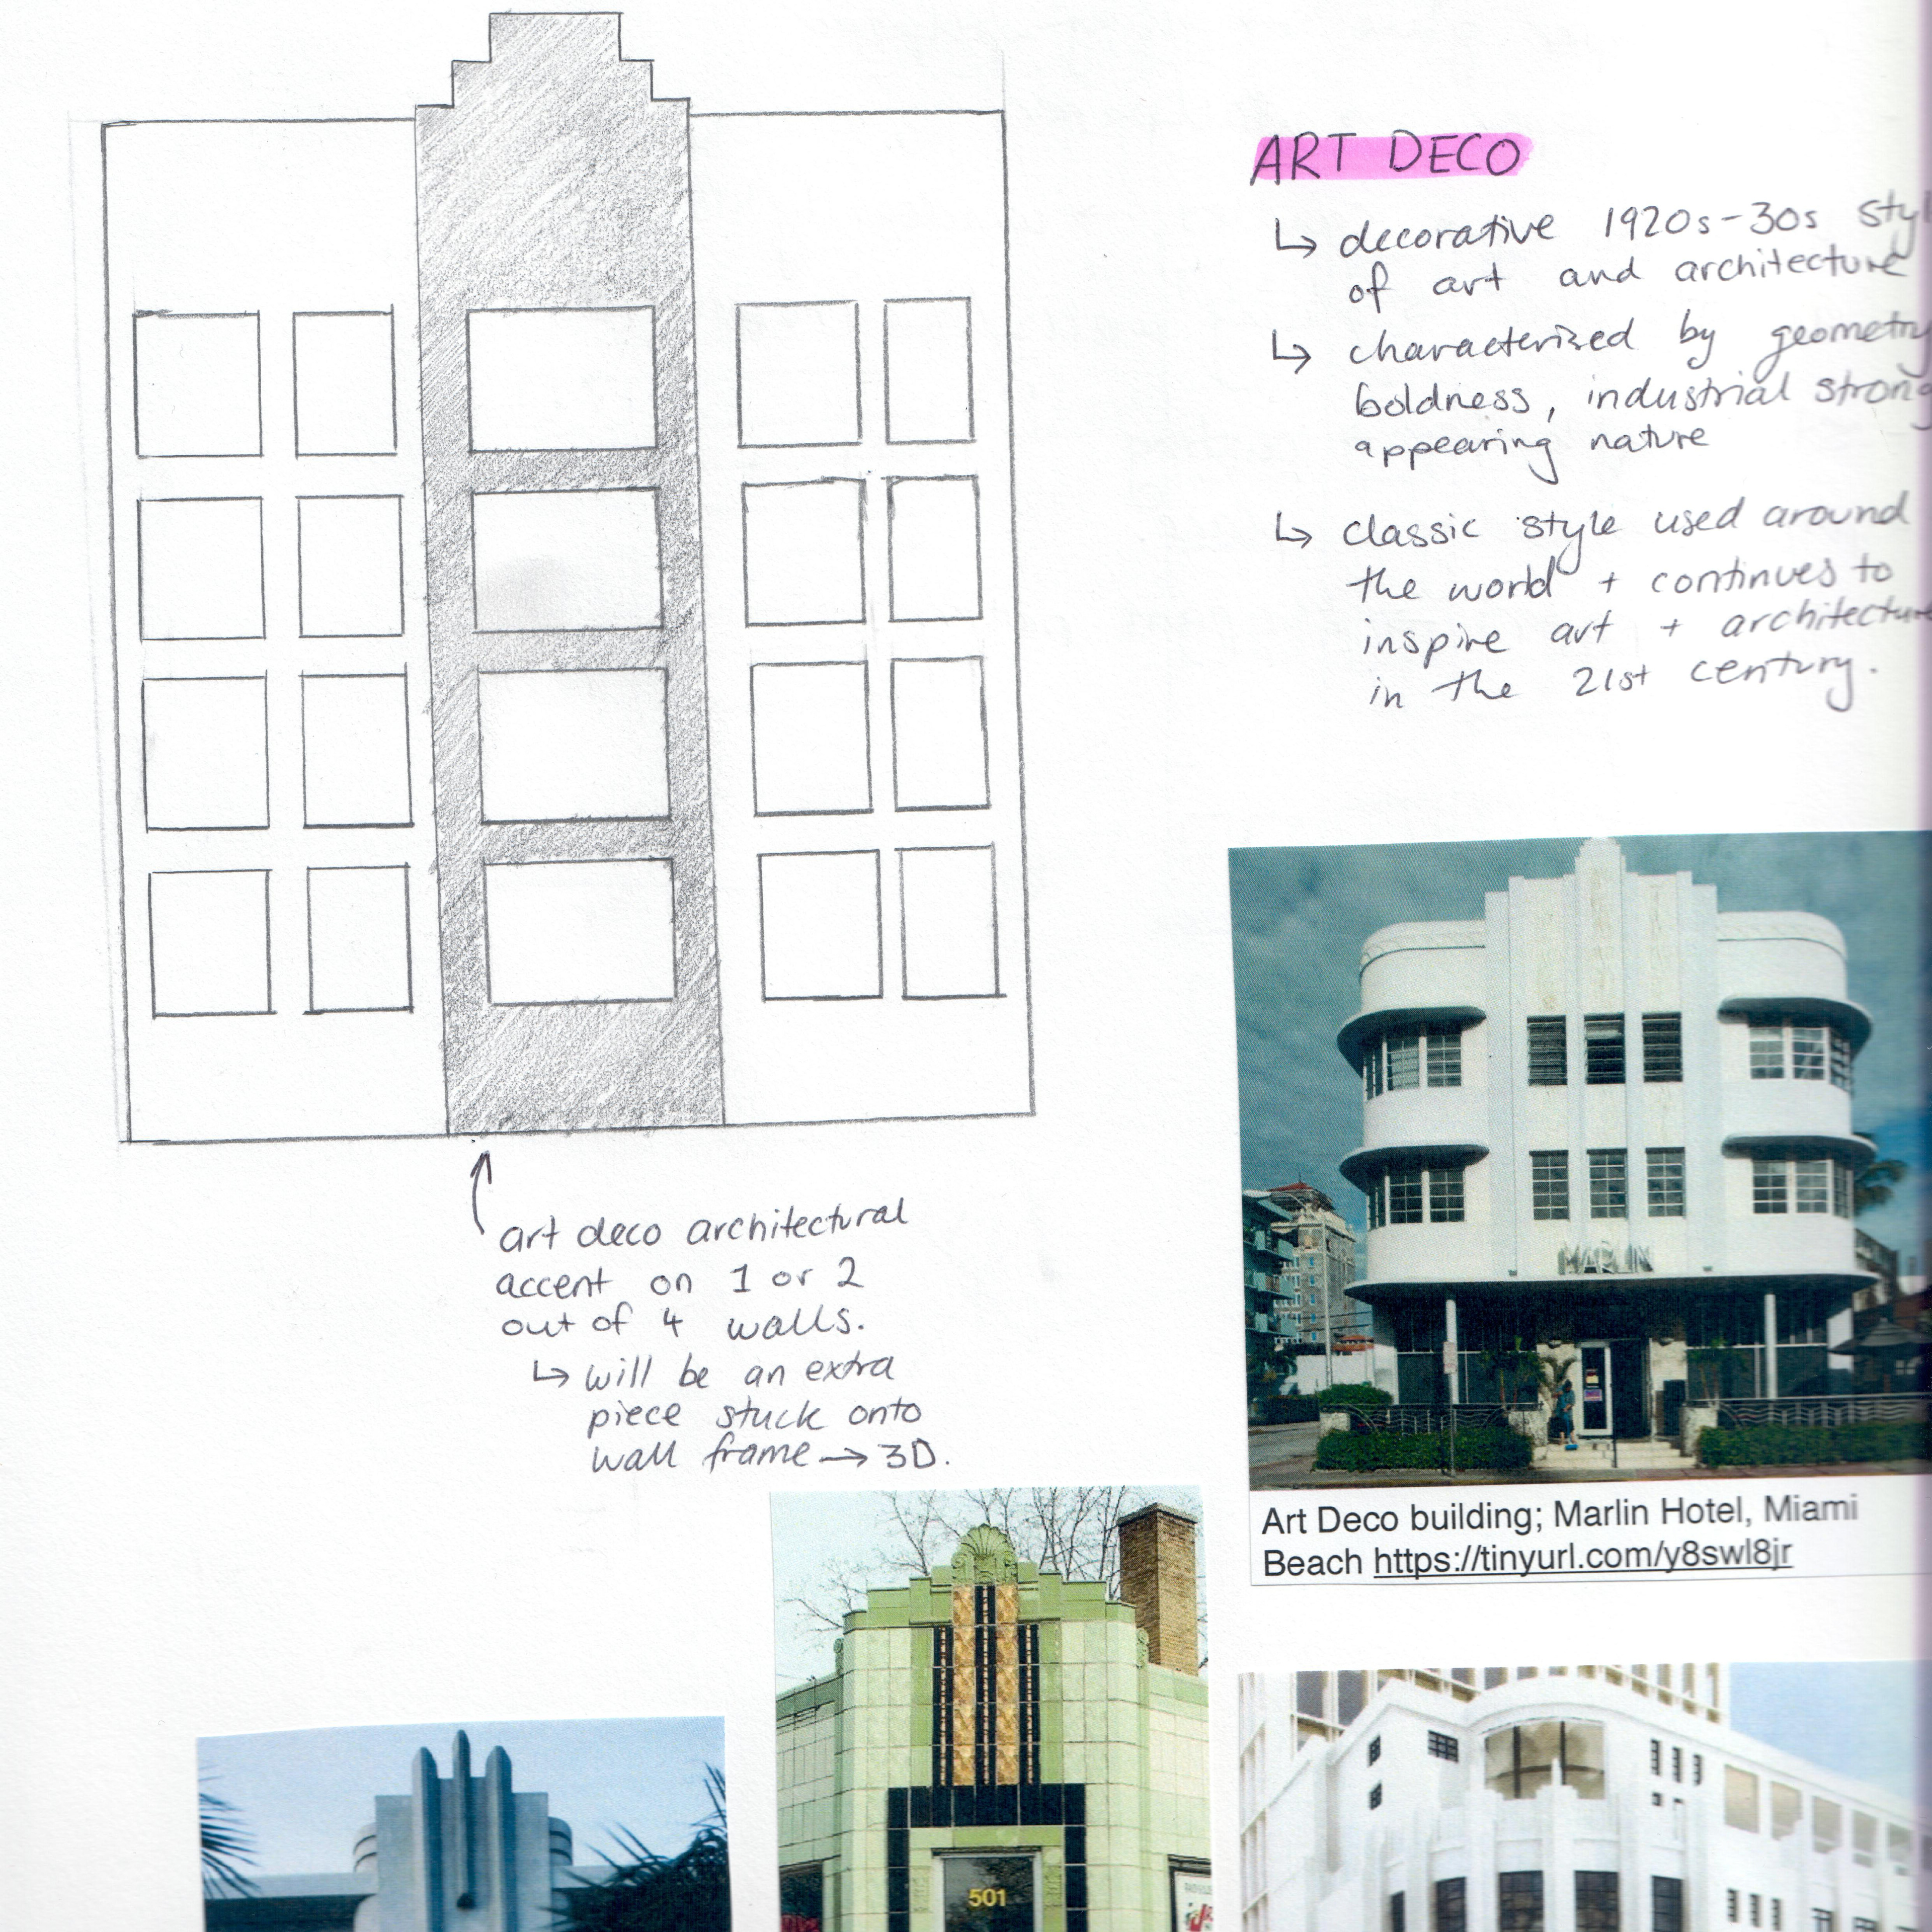 ART DECO
↳ decorative 1920s-30s
of art and architecture
↳ characterized by geometry
boldness, industrial
appearing nature
↳ classic style used around
the world + continues to
inspire art + architecture
in the 21st century.
art deco architectural
accent on 1 or 2
out of 4 walls.
↳ will be an extra
piece stuck onto
wall frame → 3D.
MARLIN
Art Deco building; Marlin Hotel, Miami
Beach https://tinyurl.com/y8swl8jr
501